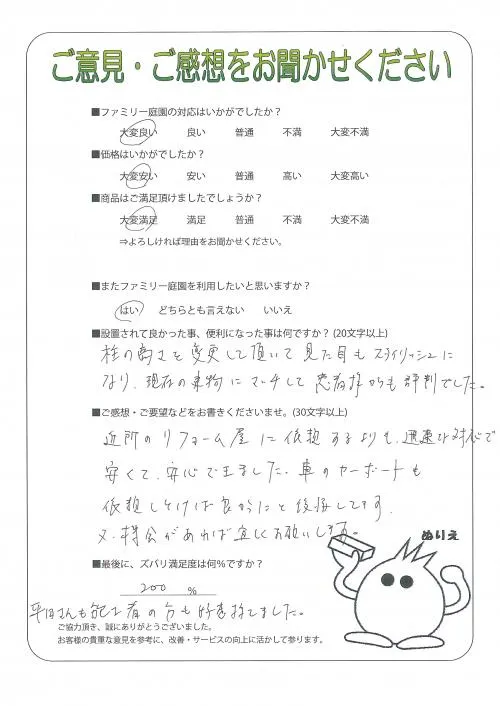 ご意見・ご感想をお聞かせください
■ファミリー庭園の対応はいかがでしたか？
大変良い 良い 普通 不満 大変不満
■価格はいかがでしたか？
大変安い 安い 普通 高い 大変高い
■商品はご満足頂けましたでしょうか？
大変満足 満足 普通 不満 大変不満
⇒よろしければ理由をお聞かせください。
■またファミリー庭園を利用したいと思いますか？
はい どちらとも言えない いいえ
■設置されて良かった事、便利になった事は何ですか？(20文字以上)
柱の高さを変更して頂いて見た目もスタイリッシュに
なり、現在の建物にマーチして患者様からも評判でした。
■ご感想・ご要望などをお書きくださいませ。(30文字以上)
近所のリフォーム屋に依頼するよりも、迅速な対応で
安くて、安心できました、車のカーポートも
依頼しとけば良かったと後悔してます、
又、機会があれば宜しくお願いします。
ぬりえ
■最後に、ズバリ満足度は何％ですか？
200 %
平田さんも施工者の方も好意持てました。
ご協力頂き、誠にありがとうございました。
お客様の貴重な意見を参考に、改善・サービスの向上に活かして参ります。